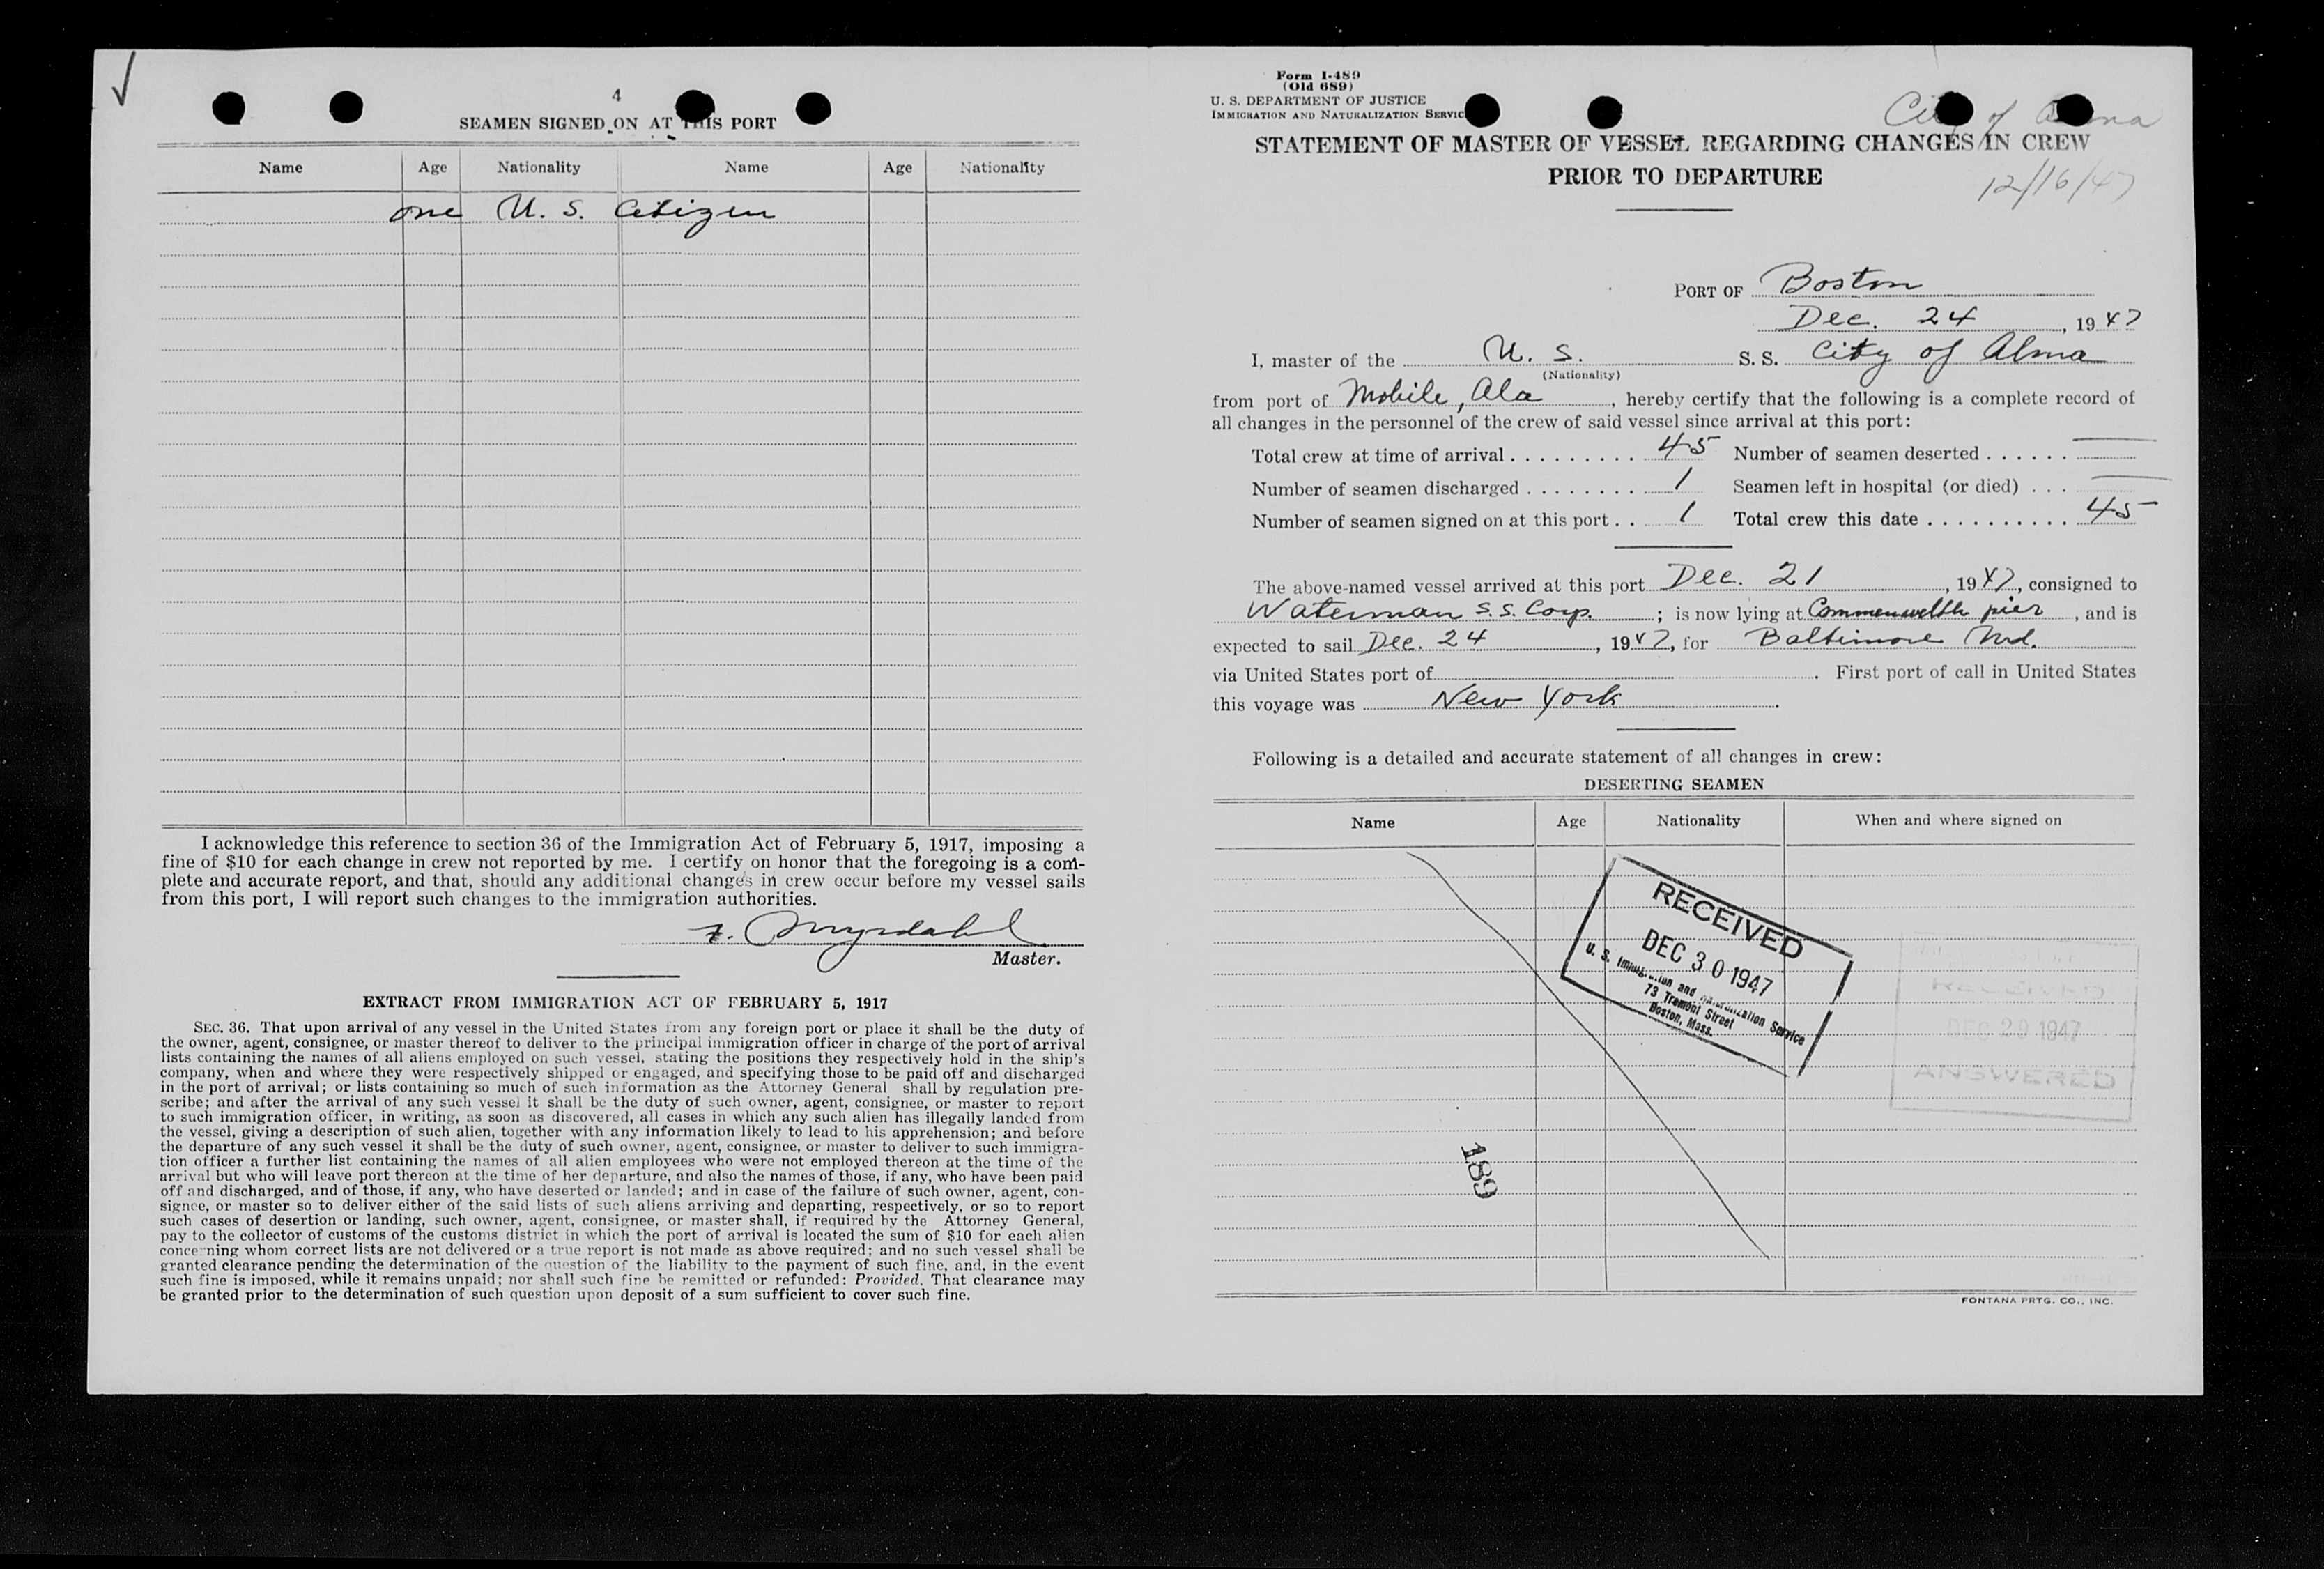 4
SEAMEN SIGNED ON AT THIS PORT
Name Age Nationality Name Age Nationality
one U. S. Citizen
I acknowledge this reference to section 36 of the Immigration Act of February 5, 1917, imposing a
fine of $10 for each change in crew not reported by me. I certify on honor that the foregoing is a com-
plete and accurate report, and that, should any additional changes in crew occur before my vessel sails
from this port, I will report such changes to the immigration authorities.
Master.
EXTRACT FROM IMMIGRATION ACT OF FEBRUARY 5, 1917
SEC. 36. That upon arrival of any vessel in the United States from any foreign port or place it shall be the duty of
the owner, agent, consignee, or master thereof to deliver to the principal immigration officer in charge of the port of arrival
lists containing the names of all aliens employed on such vessel, stating the positions they respectively hold in the ship's
company, when and where they were respectively shipped or engaged, and specifying those to be paid off and discharged
in the port of arrival; or lists containing so much of such information as the Attorney General shall by regulation pre-
scribe; and after the arrival of any such vessel it shall be the duty of such owner, agent, consignee, or master to report
to such immigration officer, in writing, as soon as discovered, all cases in which any such alien has illegally landed from
the vessel, giving a description of such alien, together with any information likely to lead to his apprehension; and before
the departure of any such vessel it shall be the duty of such owner, agent, consignee, or master to deliver to such immigra-
tion officer a further list containing the names of all alien employees who were not employed thereon at the time of the
arrival but who will leave port thereon at the time of her departure, and also the names of those, if any, who have been paid
off and discharged, and of those, if any, who have deserted or landed; and in case of the failure of such owner, agent, con-
signee, or master so to deliver either of the said lists of such aliens arriving and departing, respectively, or so to report
such cases of desertion or landing, such owner, agent, consignee, or master shall, if required by the Attorney General,
pay to the collector of customs of the customs district in which the port of arrival is located the sum of $10 for each alien
concerning whom correct lists are not delivered or a true report is not made as above required; and no such vessel shall be
granted clearance pending the determination of the question of the liability to the payment of such fine, and, in the event
such fine is imposed, while it remains unpaid; nor shall such fine be remitted or refunded: Provided, That clearance may
be granted prior to the determination of such question upon deposit of a sum sufficient to cover such fine.
Form I-489
(Old 689)
U. S. DEPARTMENT OF JUSTICE
IMMIGRATION AND NATURALIZATION SERVIC
City of Alma
STATEMENT OF MASTER OF VESSEL REGARDING CHANGES IN CREW
PRIOR TO DEPARTURE
12/16/47
PORT OF Boston
Dec. 24, 1947
I, master of the U. S. S. S. City of Alma
(Nationality)
from port of Mobile, Ala, hereby certify that the following is a complete record of
all changes in the personnel of the crew of said vessel since arrival at this port:
Total crew at time of arrival . . . . . . . . . . 45 Number of seamen deserted . . . . . . —
Number of seamen discharged . . . . . . . . 1 Seamen left in hospital (or died) . . . —
Number of seamen signed on at this port . . 1 Total crew this date . . . . . . . . . . . 45
The above-named vessel arrived at this port Dec. 21, 1947, consigned to
Waterman S.S. Corp. ; is now lying at Commenwelth pier, and is
expected to sail Dec. 24, 1947, for Baltimore Md.
via United States port of . First port of call in United States
this voyage was New York.
Following is a detailed and accurate statement of all changes in crew:
DESERTING SEAMEN
Name Age Nationality When and where signed on
RECEIVED
DEC 30 1947
U. S. Immigration and Naturalization Service
73 Tremont Street
Boston, Mass.
RECEIVED
DEC 29 1947
ANSWERED
189
FONTANA PRTG. CO., INC.